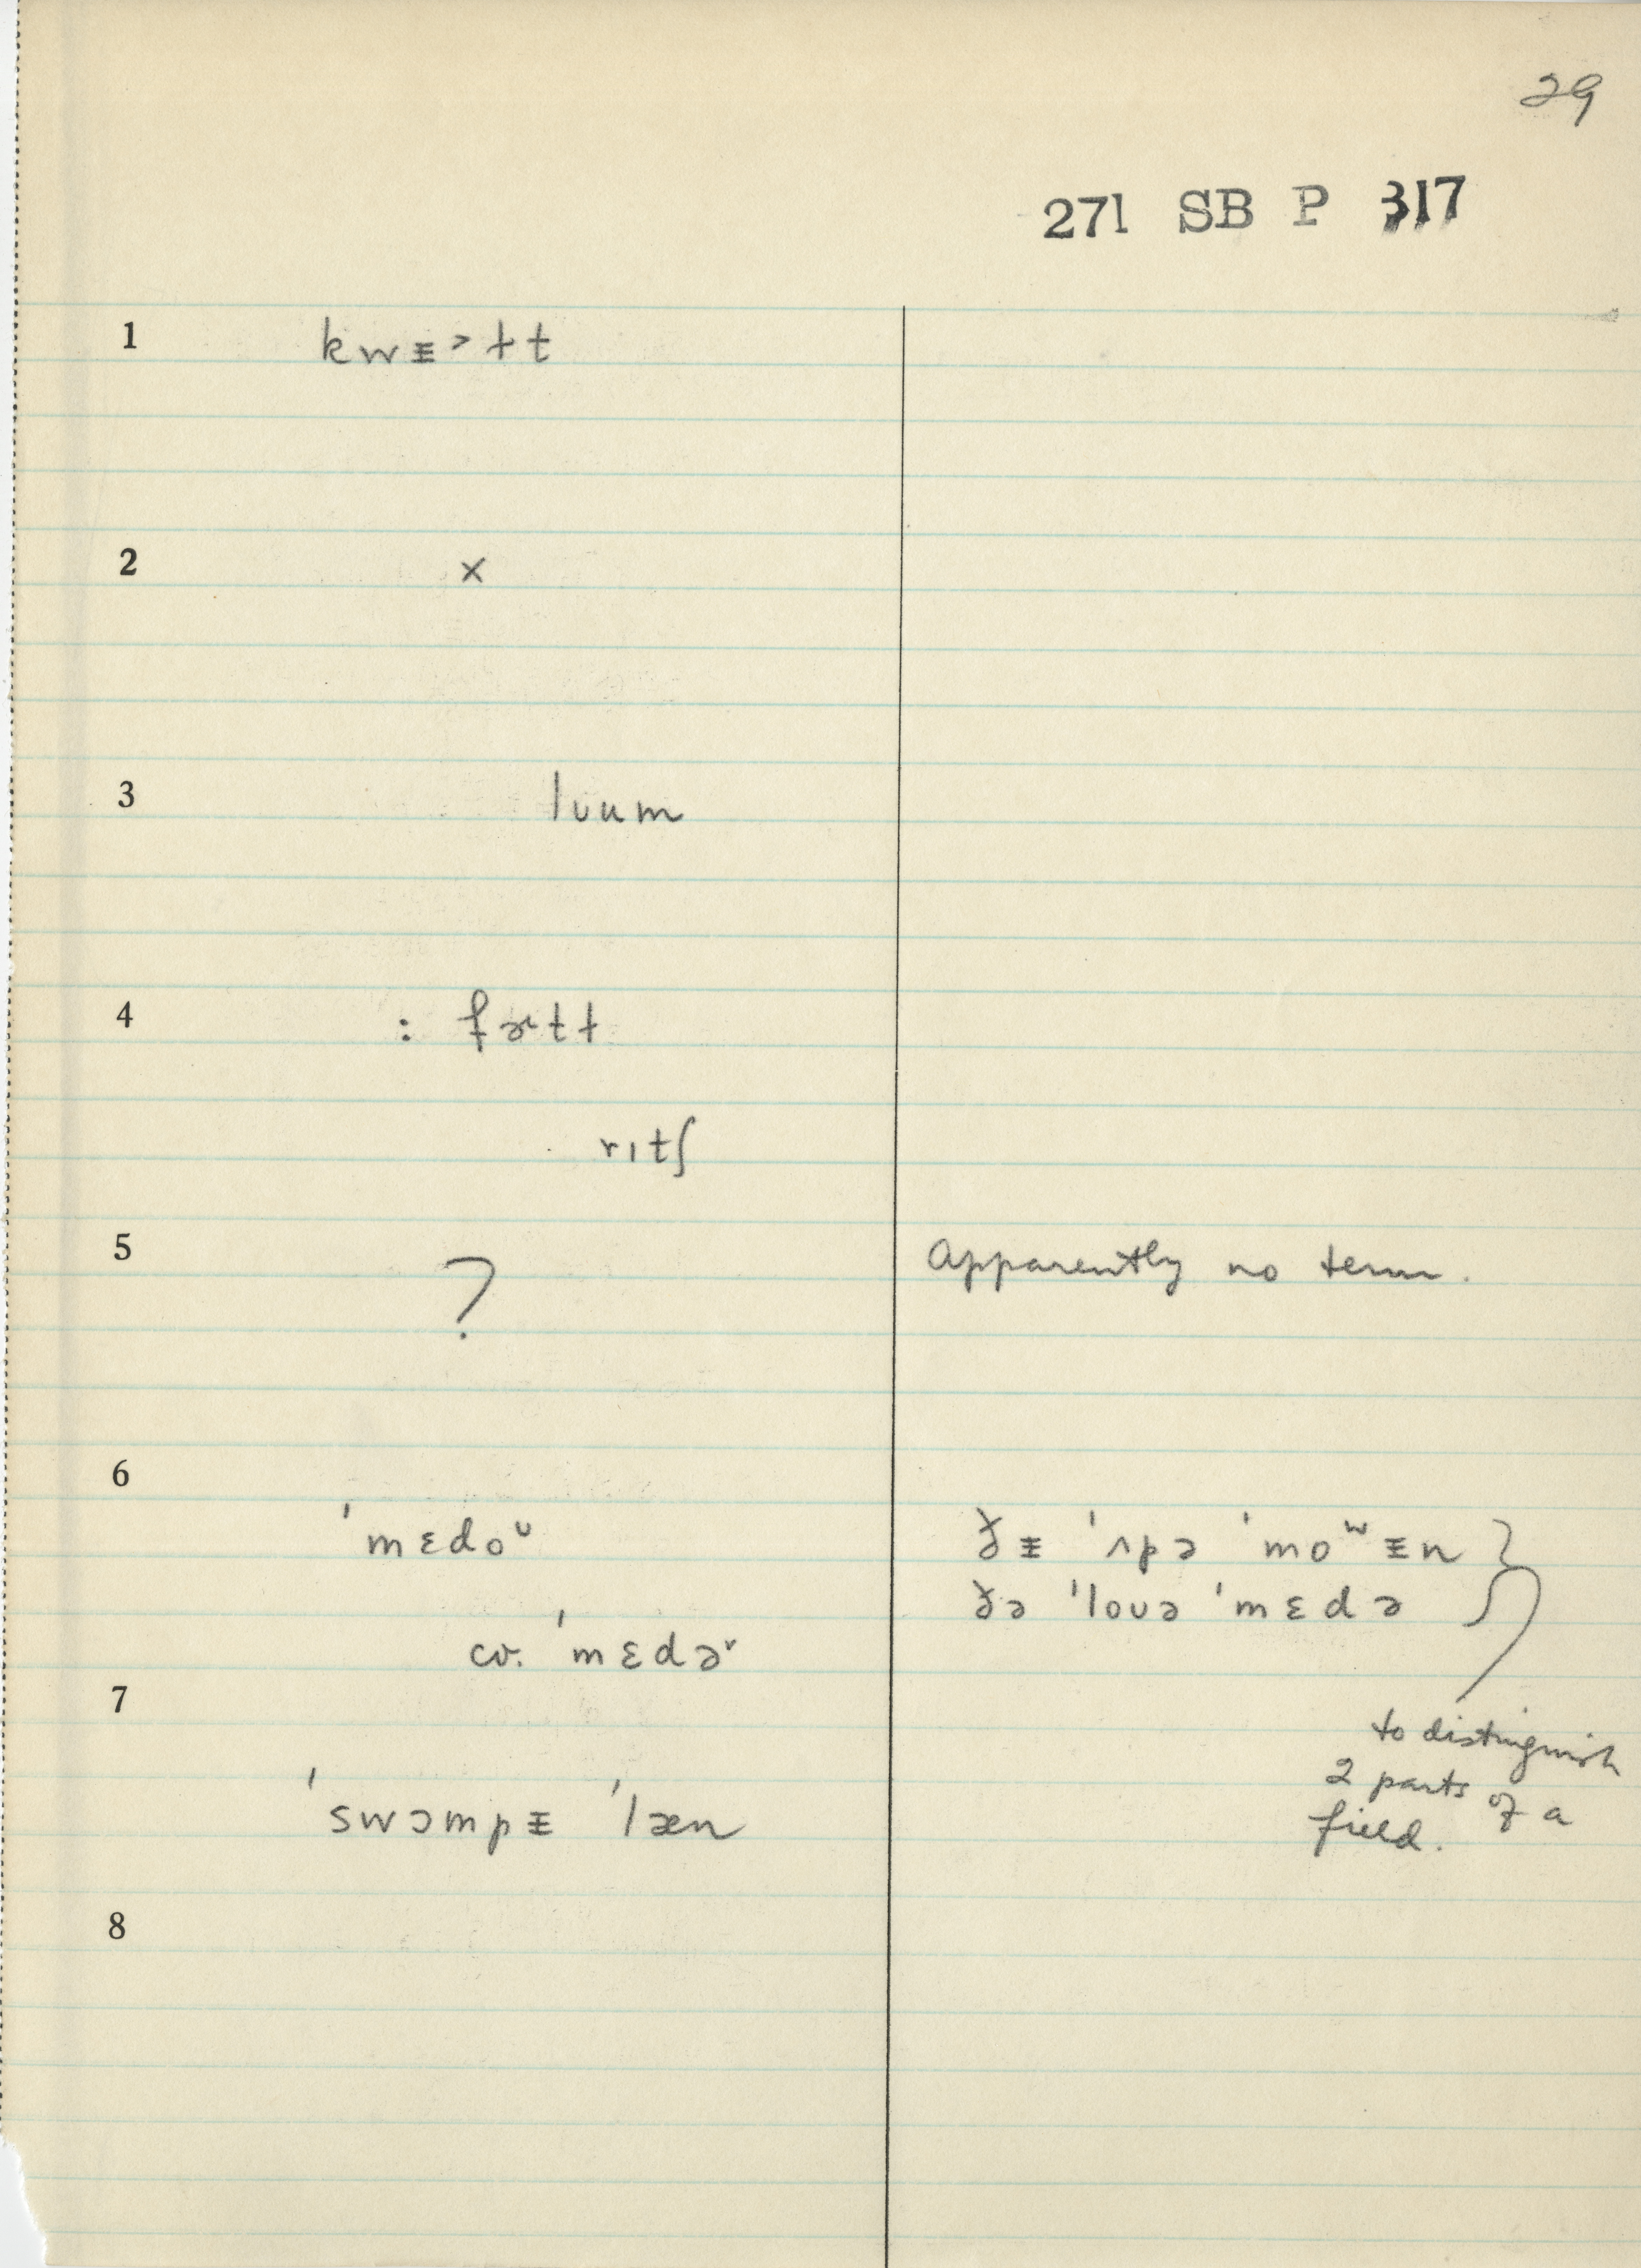 29
271 SB P 317
1 kwᵻ˃ɫt
2 ×
3 lʊum
4 : fɚtɫ
rɪtʃ
5 ? Apparently no term.
6
ˈmɛdoᵁ ðᵻ ˈʌpə ˈmoʷᵻn }
ðə ˈloʊə ˈmɛdə
cv. ˈmɛdəʳ
7
to distinguish
2 parts of a
field.
ˈswɔmpᵻ ˈlæn
8